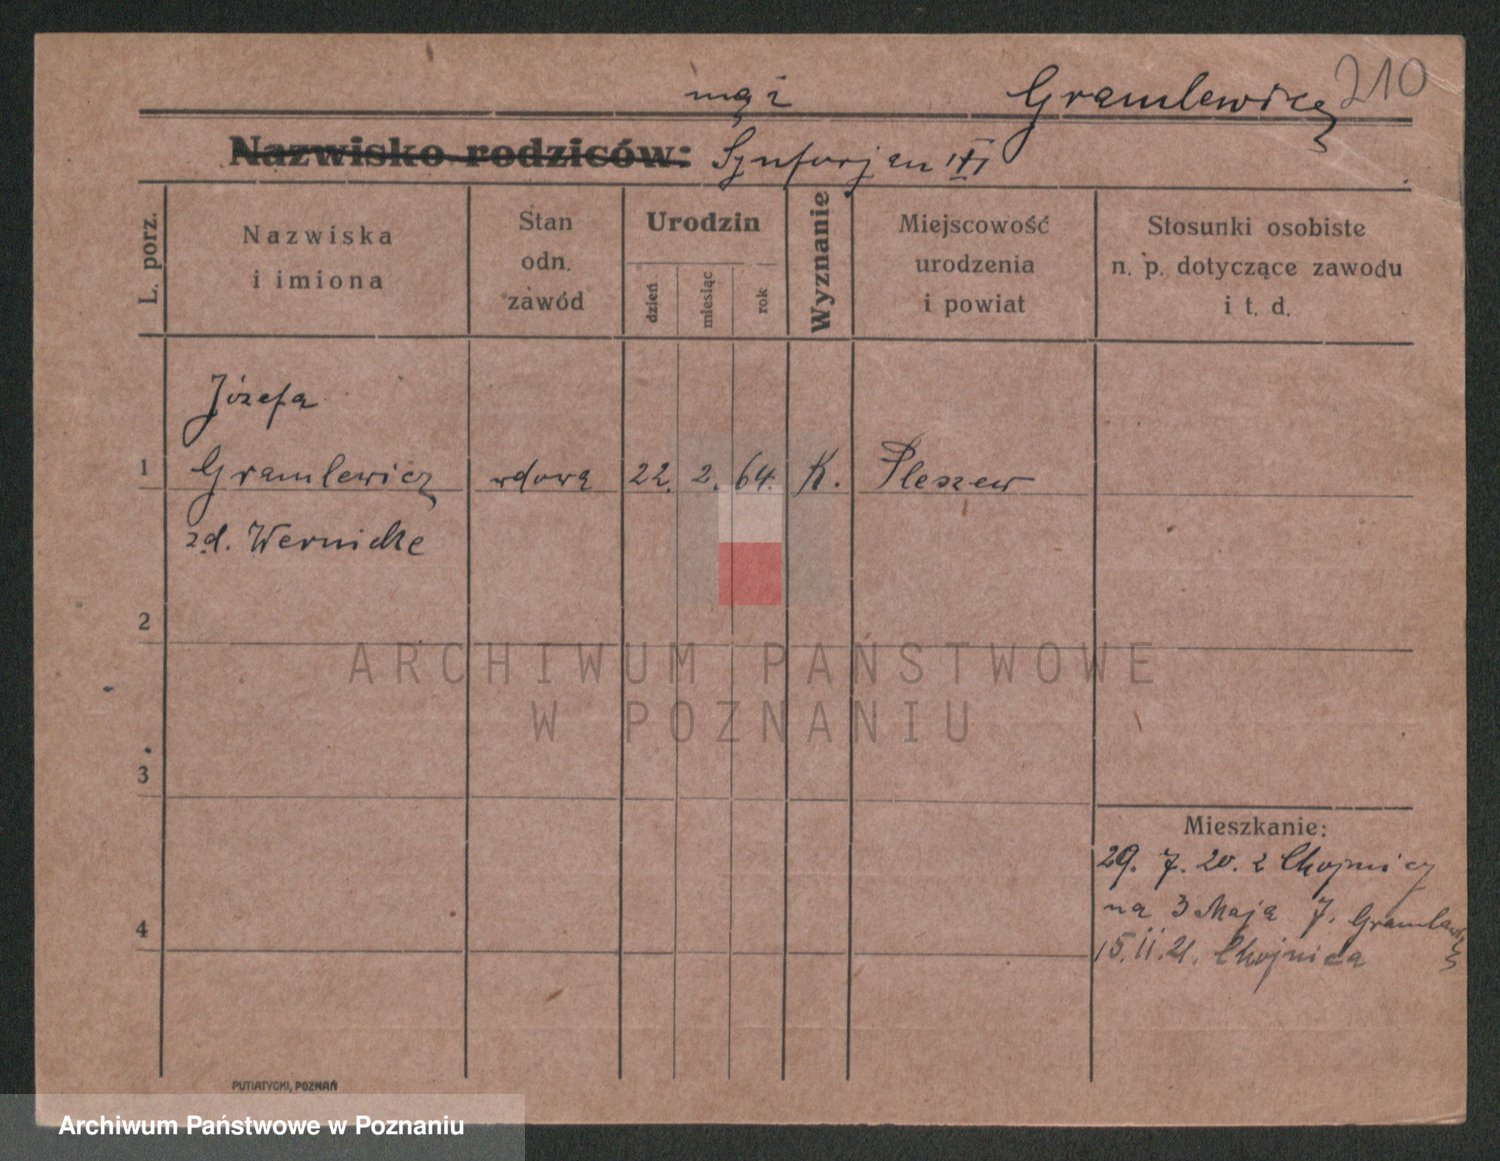 210
mąż Gramlewicz
Nazwisko rodziców: Synforjan
L. porz.
Nazwiska
i imiona
Stan
odn.
zawód
Urodzin
dzień
miesiąc
rok
Wyznanie
Miejscowość
urodzenia
i powiat
Stosunki osobiste
n. p. dotyczące zawodu
i t. d.
Józefa
1 Gramlewicz wdowa 22. 2. 64. K. Pleszew
zd. Wernicke
2
ARCHIWUM PAŃSTWOWE
W POZNANIU
3
Mieszkanie:
29. 7. 20. z Chojnicy
na 3 Maja 7. Gramlewicz
4
15. II. 21. Chojnica
PUTIATYCKI, POZNAŃ
Archiwum Państwowe w Poznaniu